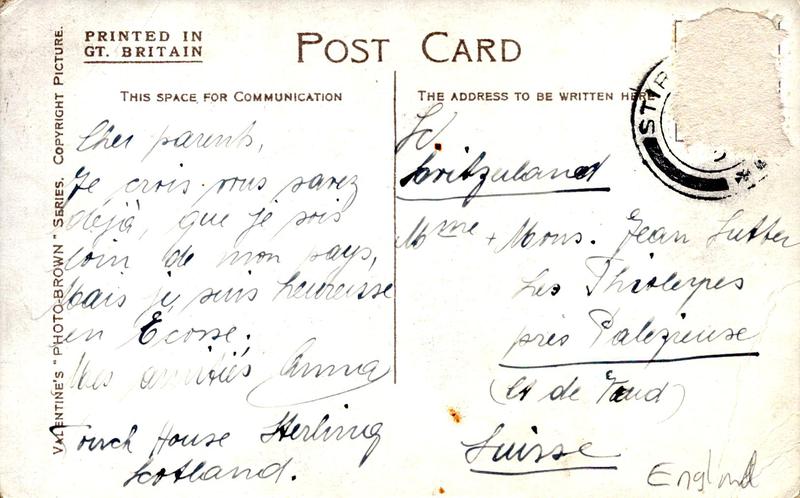 PRINTED IN
GT. BRITAIN
POST CARD
THIS SPACE FOR COMMUNICATION
THE ADDRESS TO BE WRITTEN HERE
VALENTINE'S "PHOTO-BROWN" SERIES. COPYRIGHT PICTURE.
Cher parents,
Je crois vous savez
déjà, que je suis
loin de mon pays,
Mais je suis heureuse
en Ecosse.
Mes amitiés Anna
Touch House Sterling
Scotland.
STIR
Switzerland
Mme + Mons. Jean Sutter
Les Thioleyres
près Palézieuse
(Ct de Vaud)
Suisse
England